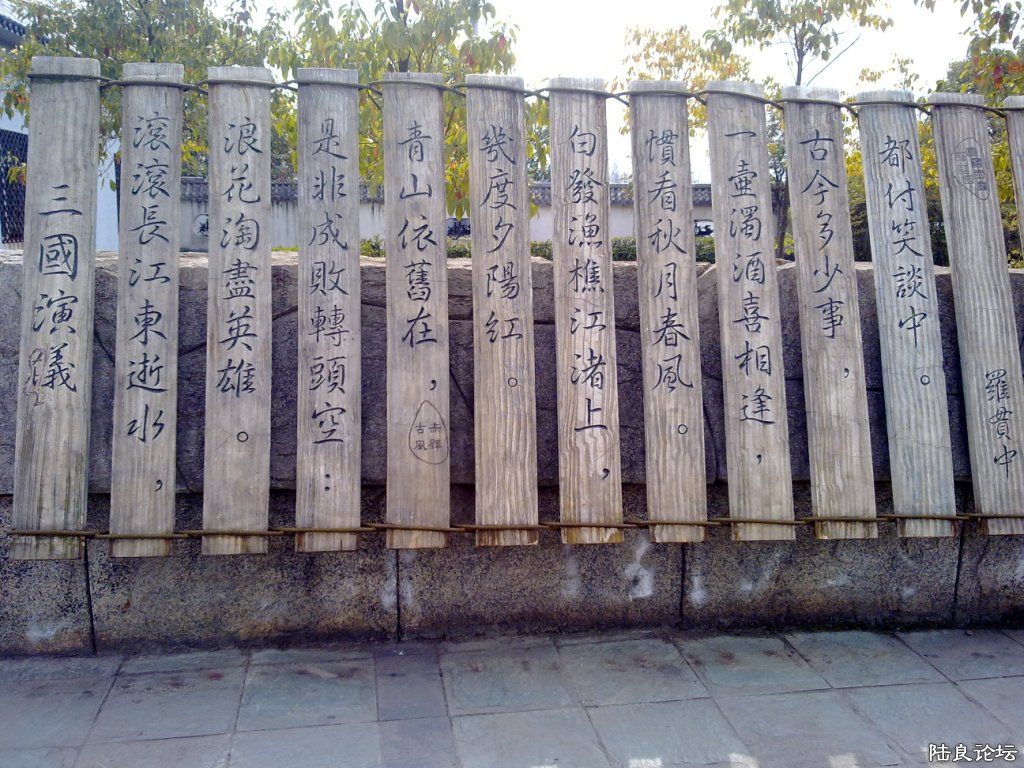 三國演義
滾滾長江東逝水，
浪花淘盡英雄。
是非成敗轉頭空：
青山依舊在，
赤壁
古風
幾度夕陽紅。
白發漁樵江渚上，
慣看秋月春風。
一壺濁酒喜相逢，
古今多少事，
都付笑談中。
羅貫中
陆良论坛